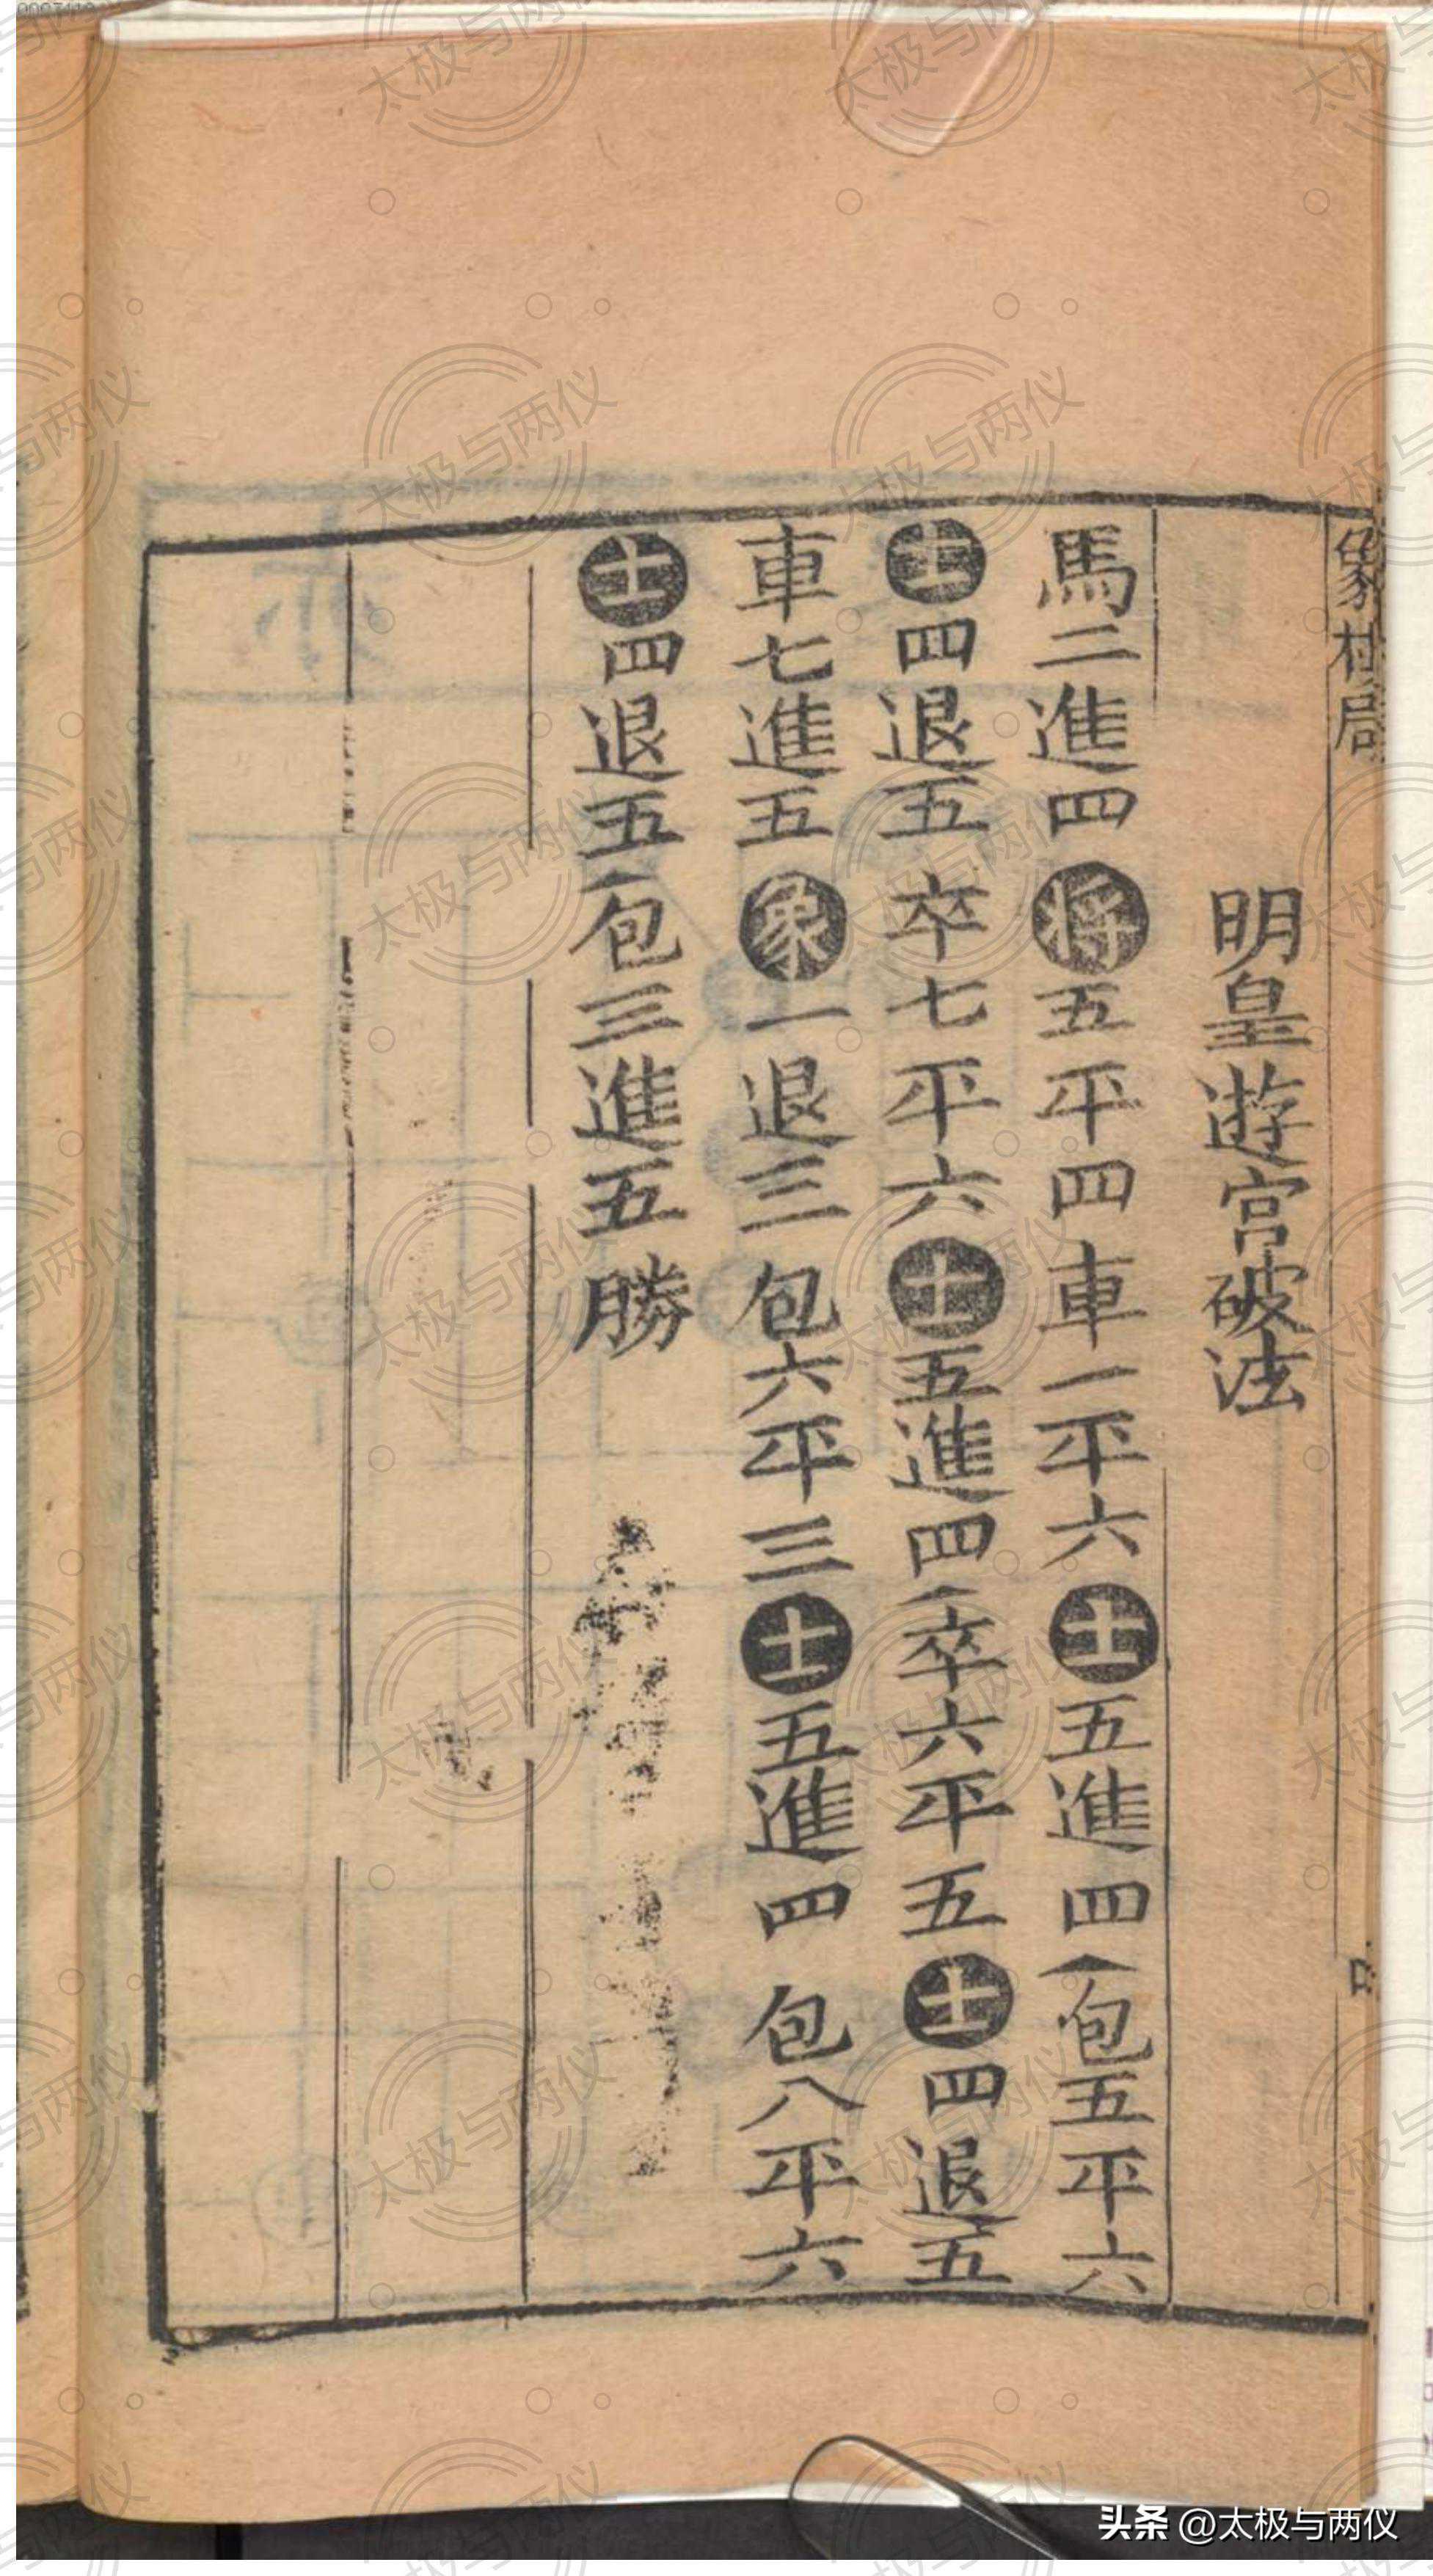 象棋局
明皇遊宫破法
馬二進四將五平四車一平六士五進四包五平六
士四退五卒七平六士五進四卒六平五士四退五
車七進五象一退三包六平三士五進四包八平六
士四退五包三進五勝
头条 @太极与两仪
太极与两仪